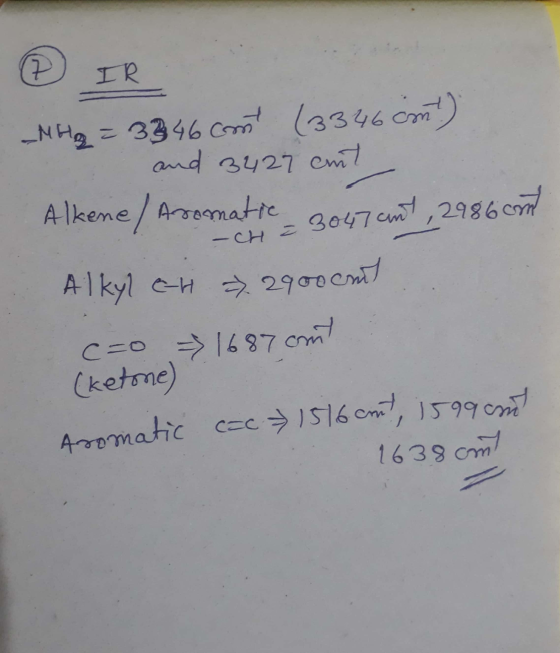 7 IR
-NH2 = 3346 cm-1 (3346 cm-1)
and 3427 cm-1
Alkene/Aromatic
-CH = 3047 cm-1, 2986 cm-1
Alkyl C-H ⇒ 2900 cm-1
C=O ⇒ 1687 cm-1
(ketone)
Aromatic C=C ⇒ 1516 cm-1, 1599 cm-1
1638 cm-1